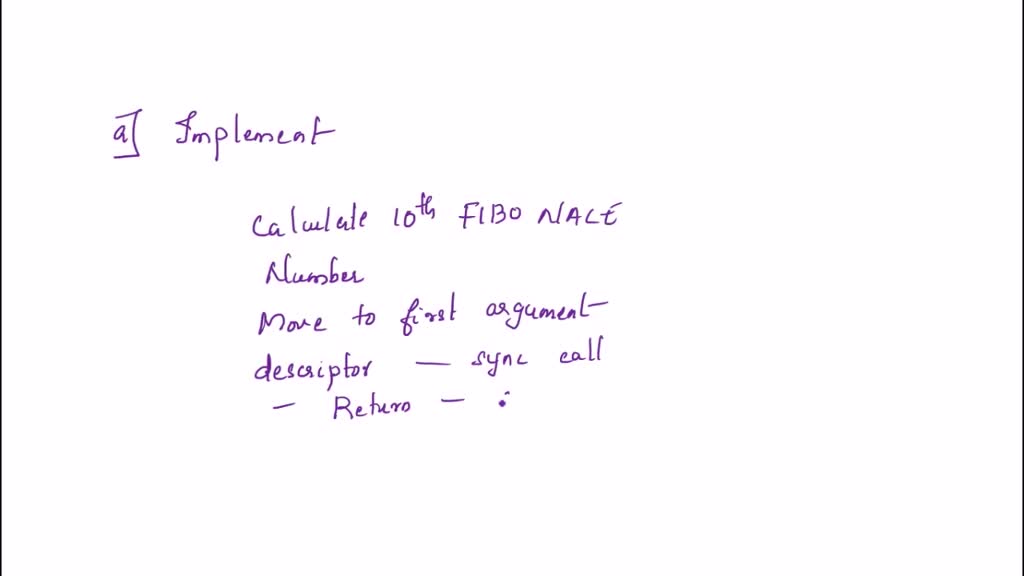 a] Implement
Calculate 10th FIBO NACE
Number
Move to first argument
descriptor — sync call
— Return —